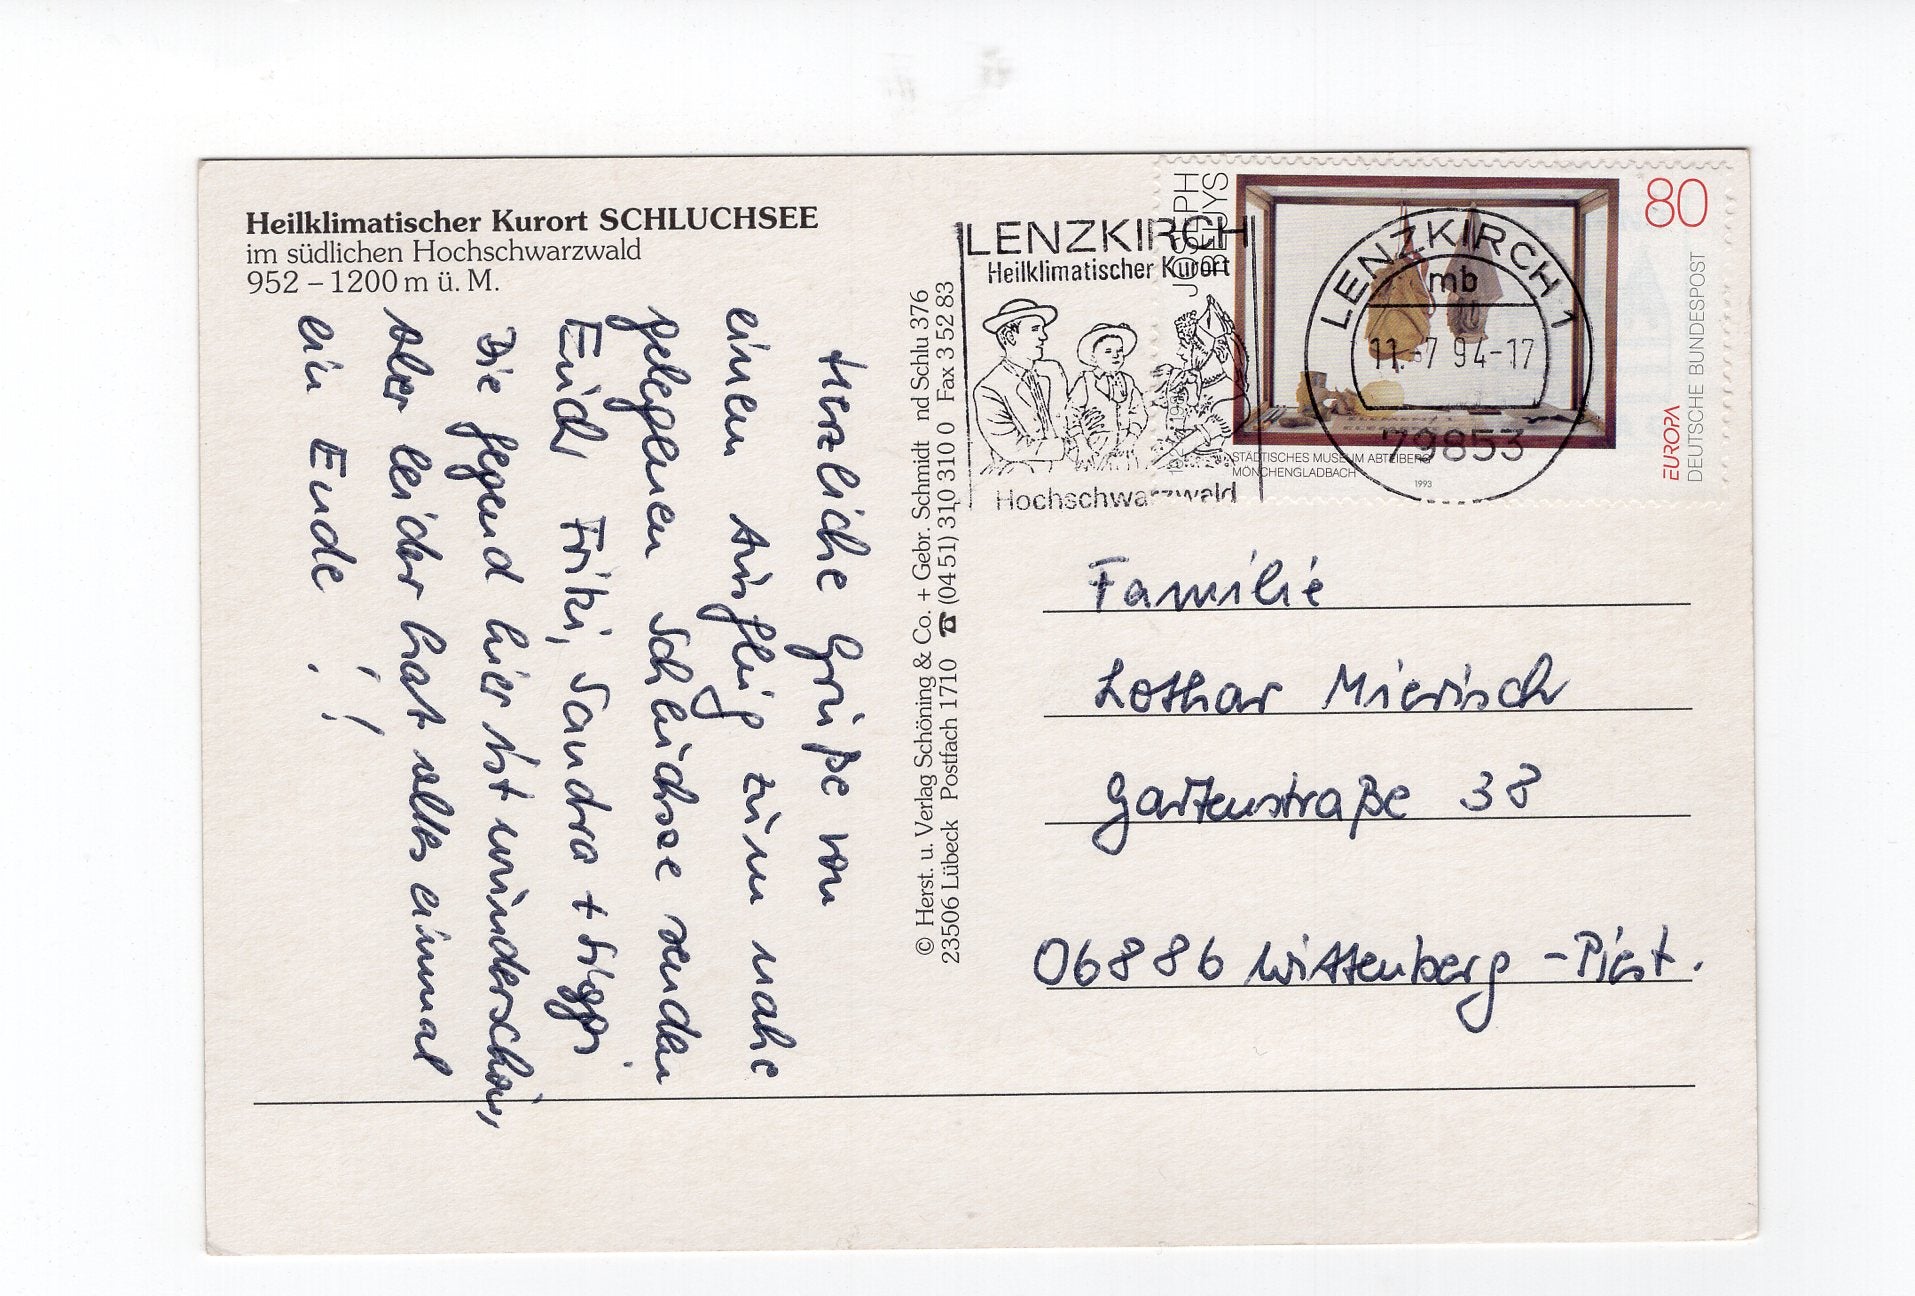 Heilklimatischer Kurort SCHLUCHSEE
im südlichen Hochschwarzwald
952 – 1200 m ü. M.
Herzliche Grüße von
einem Ausflug zum nahe
gelegenen Schluchsee senden
Euch Friki, Sandra + Siggi
Die Gegend hier ist wunderschön,
aber leider hat alles einmal
ein Ende !!!
© Herst. u. Verlag Schöning & Co. + Gebr. Schmidt nd Schlu 376
23506 Lübeck Postfach 1710 ☎ (0451) 310 310 0 Fax 3 52 83
LENZKIRCH
Heilklimatischer Kurort
Hochschwarzwald
JOSEPH
BEUYS
80
LENZKIRCH 1
mb
11.-7 94-17
79853
STÄDTISCHES MUSEUM ABTEIBERG
MÖNCHENGLADBACH
1993
EUROPA
DEUTSCHE BUNDESPOST
Familie
Lothar Mierisch
Gartenstraße 38
06886 Wittenberg -Piest.